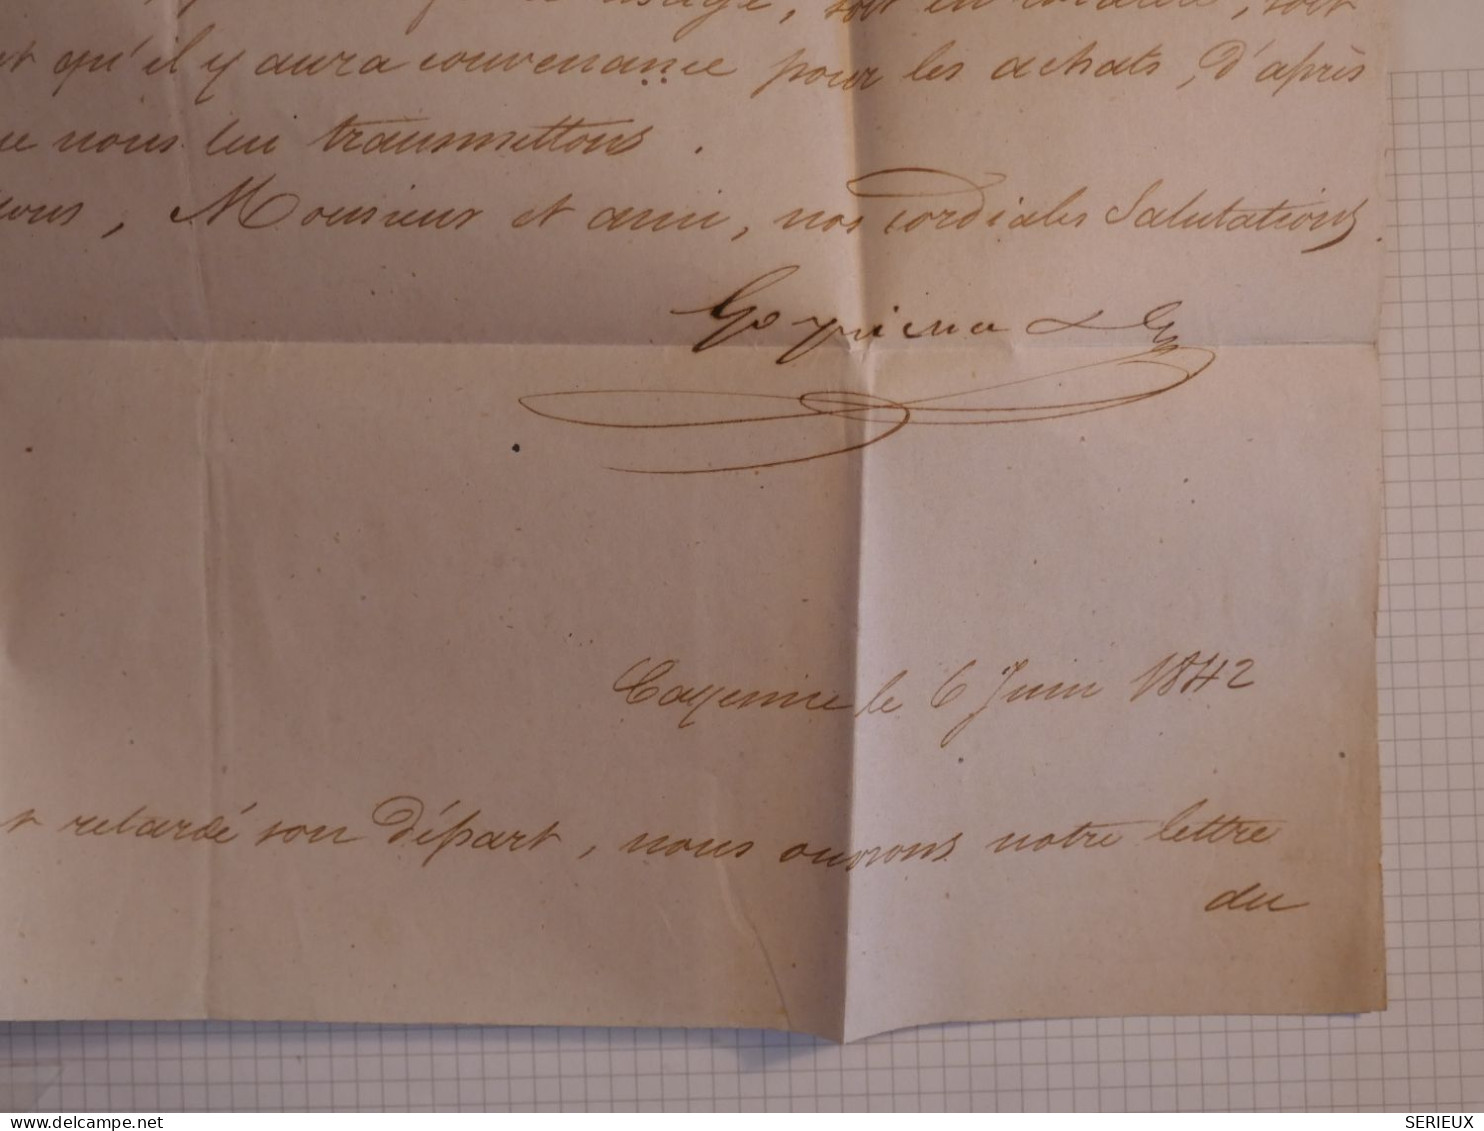 usage, soit en couleur, soit
qu'il y aura convenance pour les achats, d'après
nous lui transmettons.
Monsieur et ami, nos cordiales Salutations.
Cayenne le 6 Juin 1842
retardé son départ, nous ouvrons notre lettre
du
SERIEUX